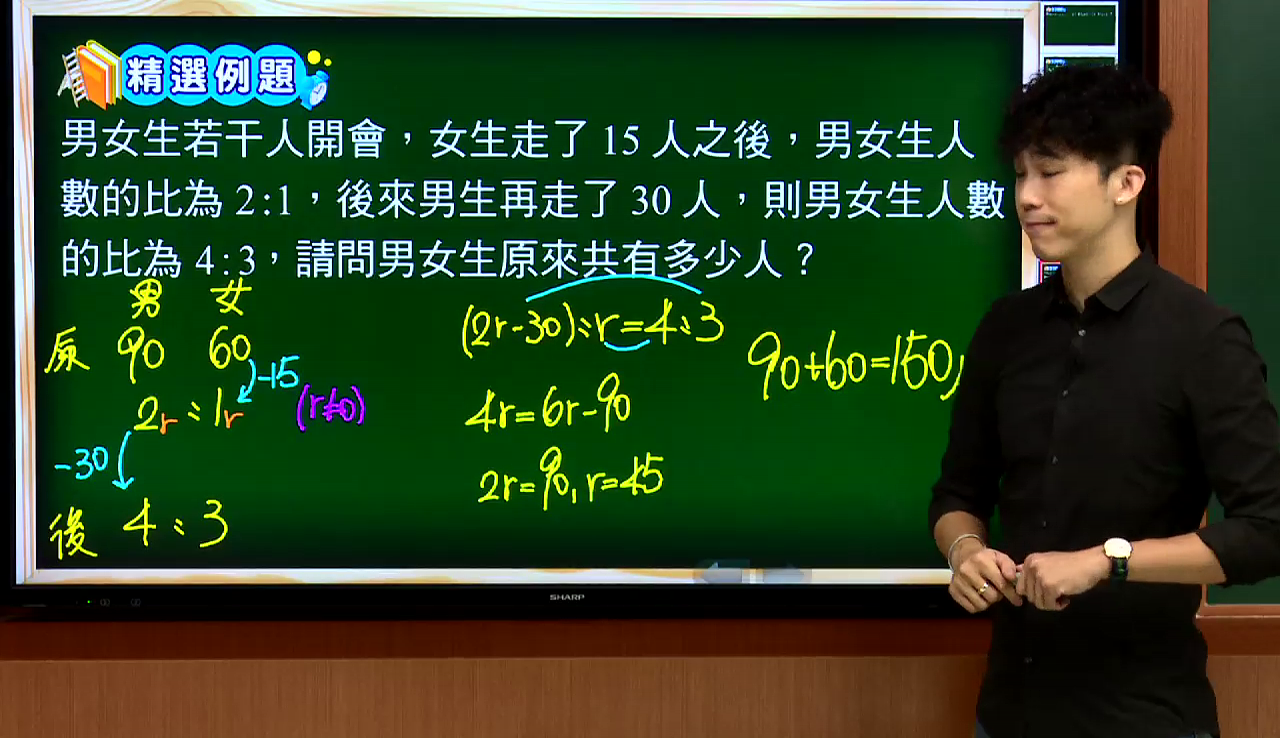 精選例題
男女生若干人開會，女生走了 15 人之後，男女生人
數的比為 2:1，後來男生再走了 30 人，則男女生人數
的比為 4:3，請問男女生原來共有多少人？
男 女
原 90 60
-15
2r : 1r (r≠0)
-30
後 4 : 3
(2r-30):r=4:3
4r=6r-90
2r=90, r=45
90+60=150
SHARP